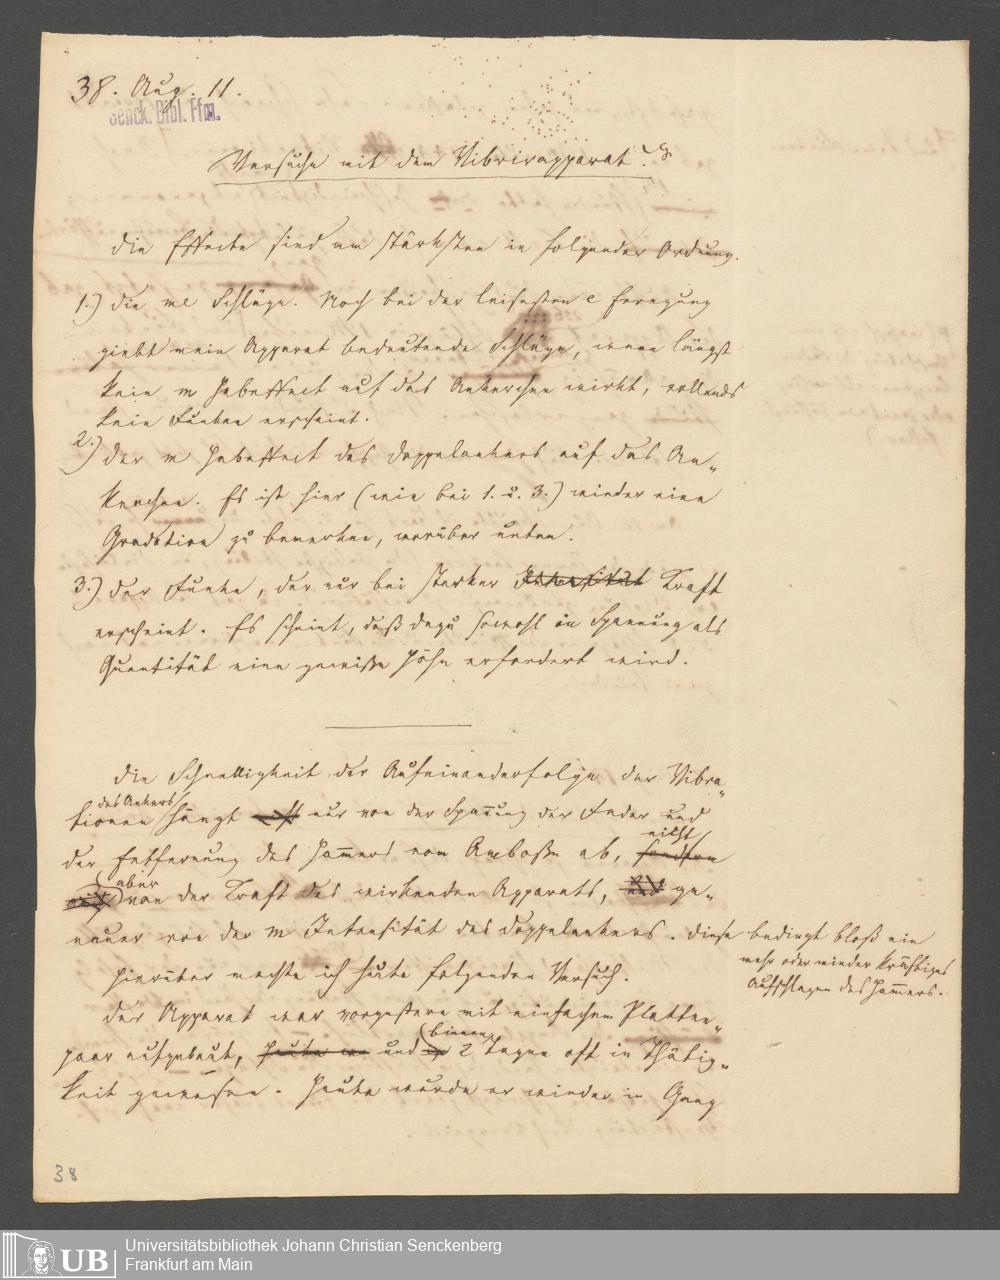 38. Aug. 11.
Senck. Bibl. Ffm.
Versuche mit dem Vibrirapparat.
Die Effecte sind am stärksten in folgender Ordnung.
1.) die me Schläge. Noch bei der leisesten e Erregung
giebt mein Apparat bedeutende Schläge, wenn längst
kein m Hubeffect auf das Ankerchen wirkt, vollends
kein Funken erscheint.
2.) der m Hubeffect des Doppelankers auf das An-
kerchen. Es ist hier (wie bei 1. u. 3.) wieder eine
Gradation zu bemerken, worüber unten.
3.) der Funke, der nur bei starker Intensität Kraft
erscheint. Es scheint, daß dazu sowohl in Spannung als
Quantität eine gewisse Höhe erfordert wird.
Die Schnelligkeit der Aufeinanderfolge der Vibra-
des Ankers
tionen hängt nur von der Spannung der Feder und
nicht
der Entfernung des Hammers vom Amboße ab, sondern
aber
von der Kraft des wirkenden Apparats, und ge-
nauer von der m Intensität des Doppelankers. Diese bedingt bloß ein
mehr oder minder kräftiges
Aufschlagen des Hammers.
Hierüber machte ich heute folgenden Versuch.
Der Apparat war vorgestern mit einfachem Platten-
binnen
paar aufgebaut, heute und in 2 Tagen oft in Thätig-
keit gewesen. Heute wurde er wieder in Gang
38
UB
Universitätsbibliothek Johann Christian Senckenberg
Frankfurt am Main